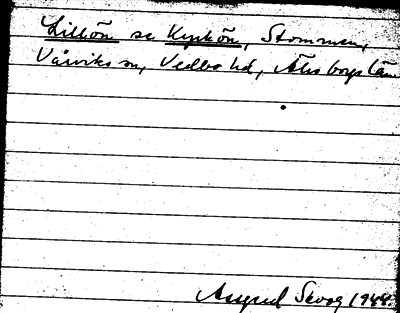 Lillön se Kyrkön, Stommen,
Vårviks sn, Vedbo hd, Älvsborgs län
Astrid Skoog 1948.